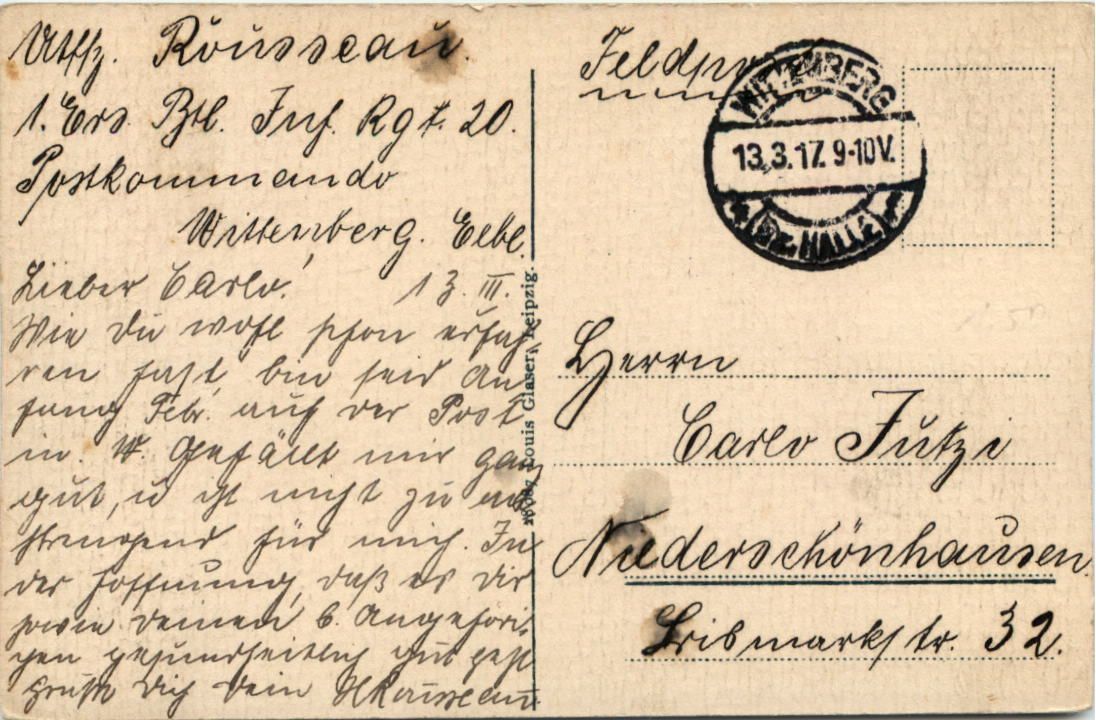 Utffz. Rousseau.
1. Ers. Btl. Inf. Rgt. 20.
Postkommando
Wittenberg. Elbe.
Lieber Carlo! 13. III.
Wie du wohl schon erfah-
ren hast, bin seid An
fang Febr. auf der Post
in W. Gefällt mir ganz
gut, u ist nicht zu an
strengend für mich. In
der Hoffnung, daß es dir
sowie deinen l. Angehöri-
gen gesundheitlich gut geht
Grüßt dich dein Rousseau
18087 Louis Glaser, Leipzig.
Feldpost
WITTENBERG
13.3.17. 9-10V.
* (Bz. HALLE)
Herrn
Carlo Jutzi
Niederschönhausen
Bismarkstr. 32.